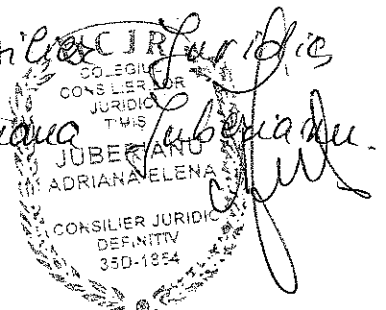 Juridic
CJR
COLEGIUL
CONSILIERILOR
JURIDICI
TIMIS
JUBERIANU
ADRIANA ELENA
Juberianu.
CONSILIER JURIDIC
DEFINITIV
35D-1854